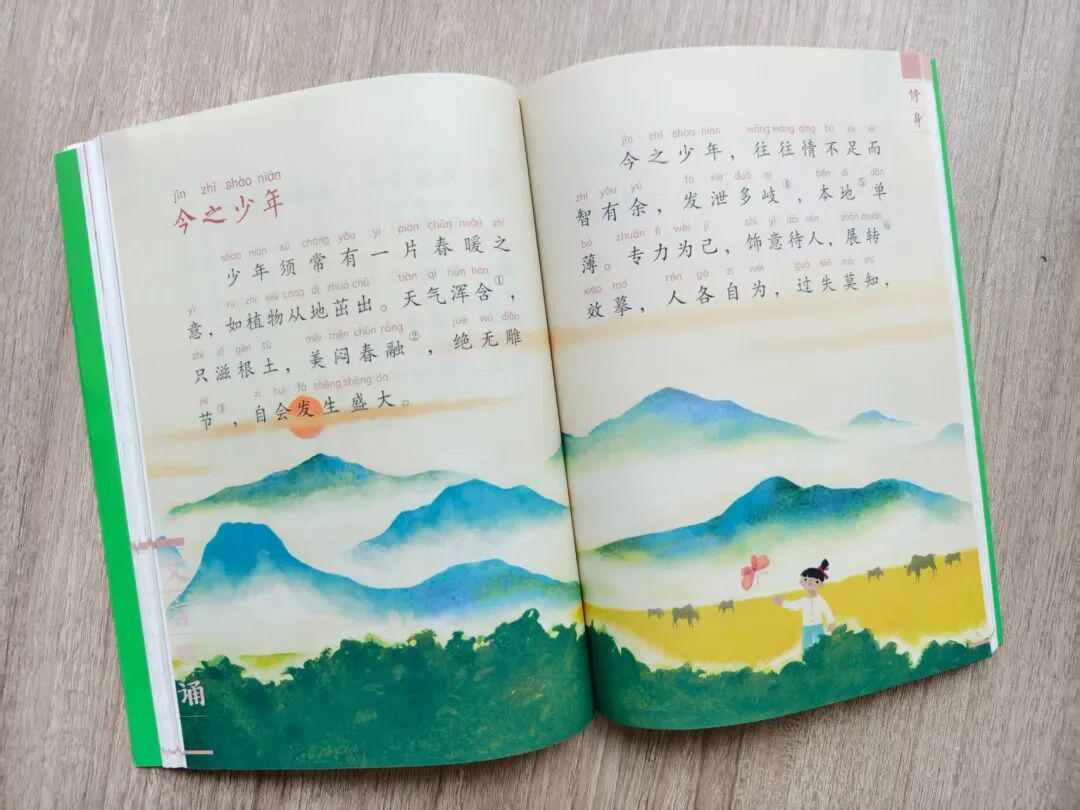 jīn zhī shào nián
今之少年
shào nián xū cháng yǒu yí piàn chūn nuǎn zhī
少年须常有一片春暖之
yì rú zhí wù cóng dì zhuó chū tiān qì hún hán
意，如植物从地茁出。天气浑含①，
zhǐ zī gēn tǔ měi mèn chūn róng jué wú diāo
只滋根土，美闷春融②，绝无雕
jié zì huì fā shēng shèng dà
节③，自会发生盛大。
诵
修身
jīn zhī shào nián wǎng wǎng qíng bù zú ér
今之少年，往往情不足而
zhì yǒu yú fā xiè duō qí běn dì dān
智有余，发泄多岐④，本地⑤单
bó zhuān lì wèi jǐ shì yì dài rén zhǎn zhuǎn
薄。专力为己，饰意待人，展转⑥
xiào mó rén gè zì wéi guò shī mò zhī
效摹，人各自为，过失莫知，